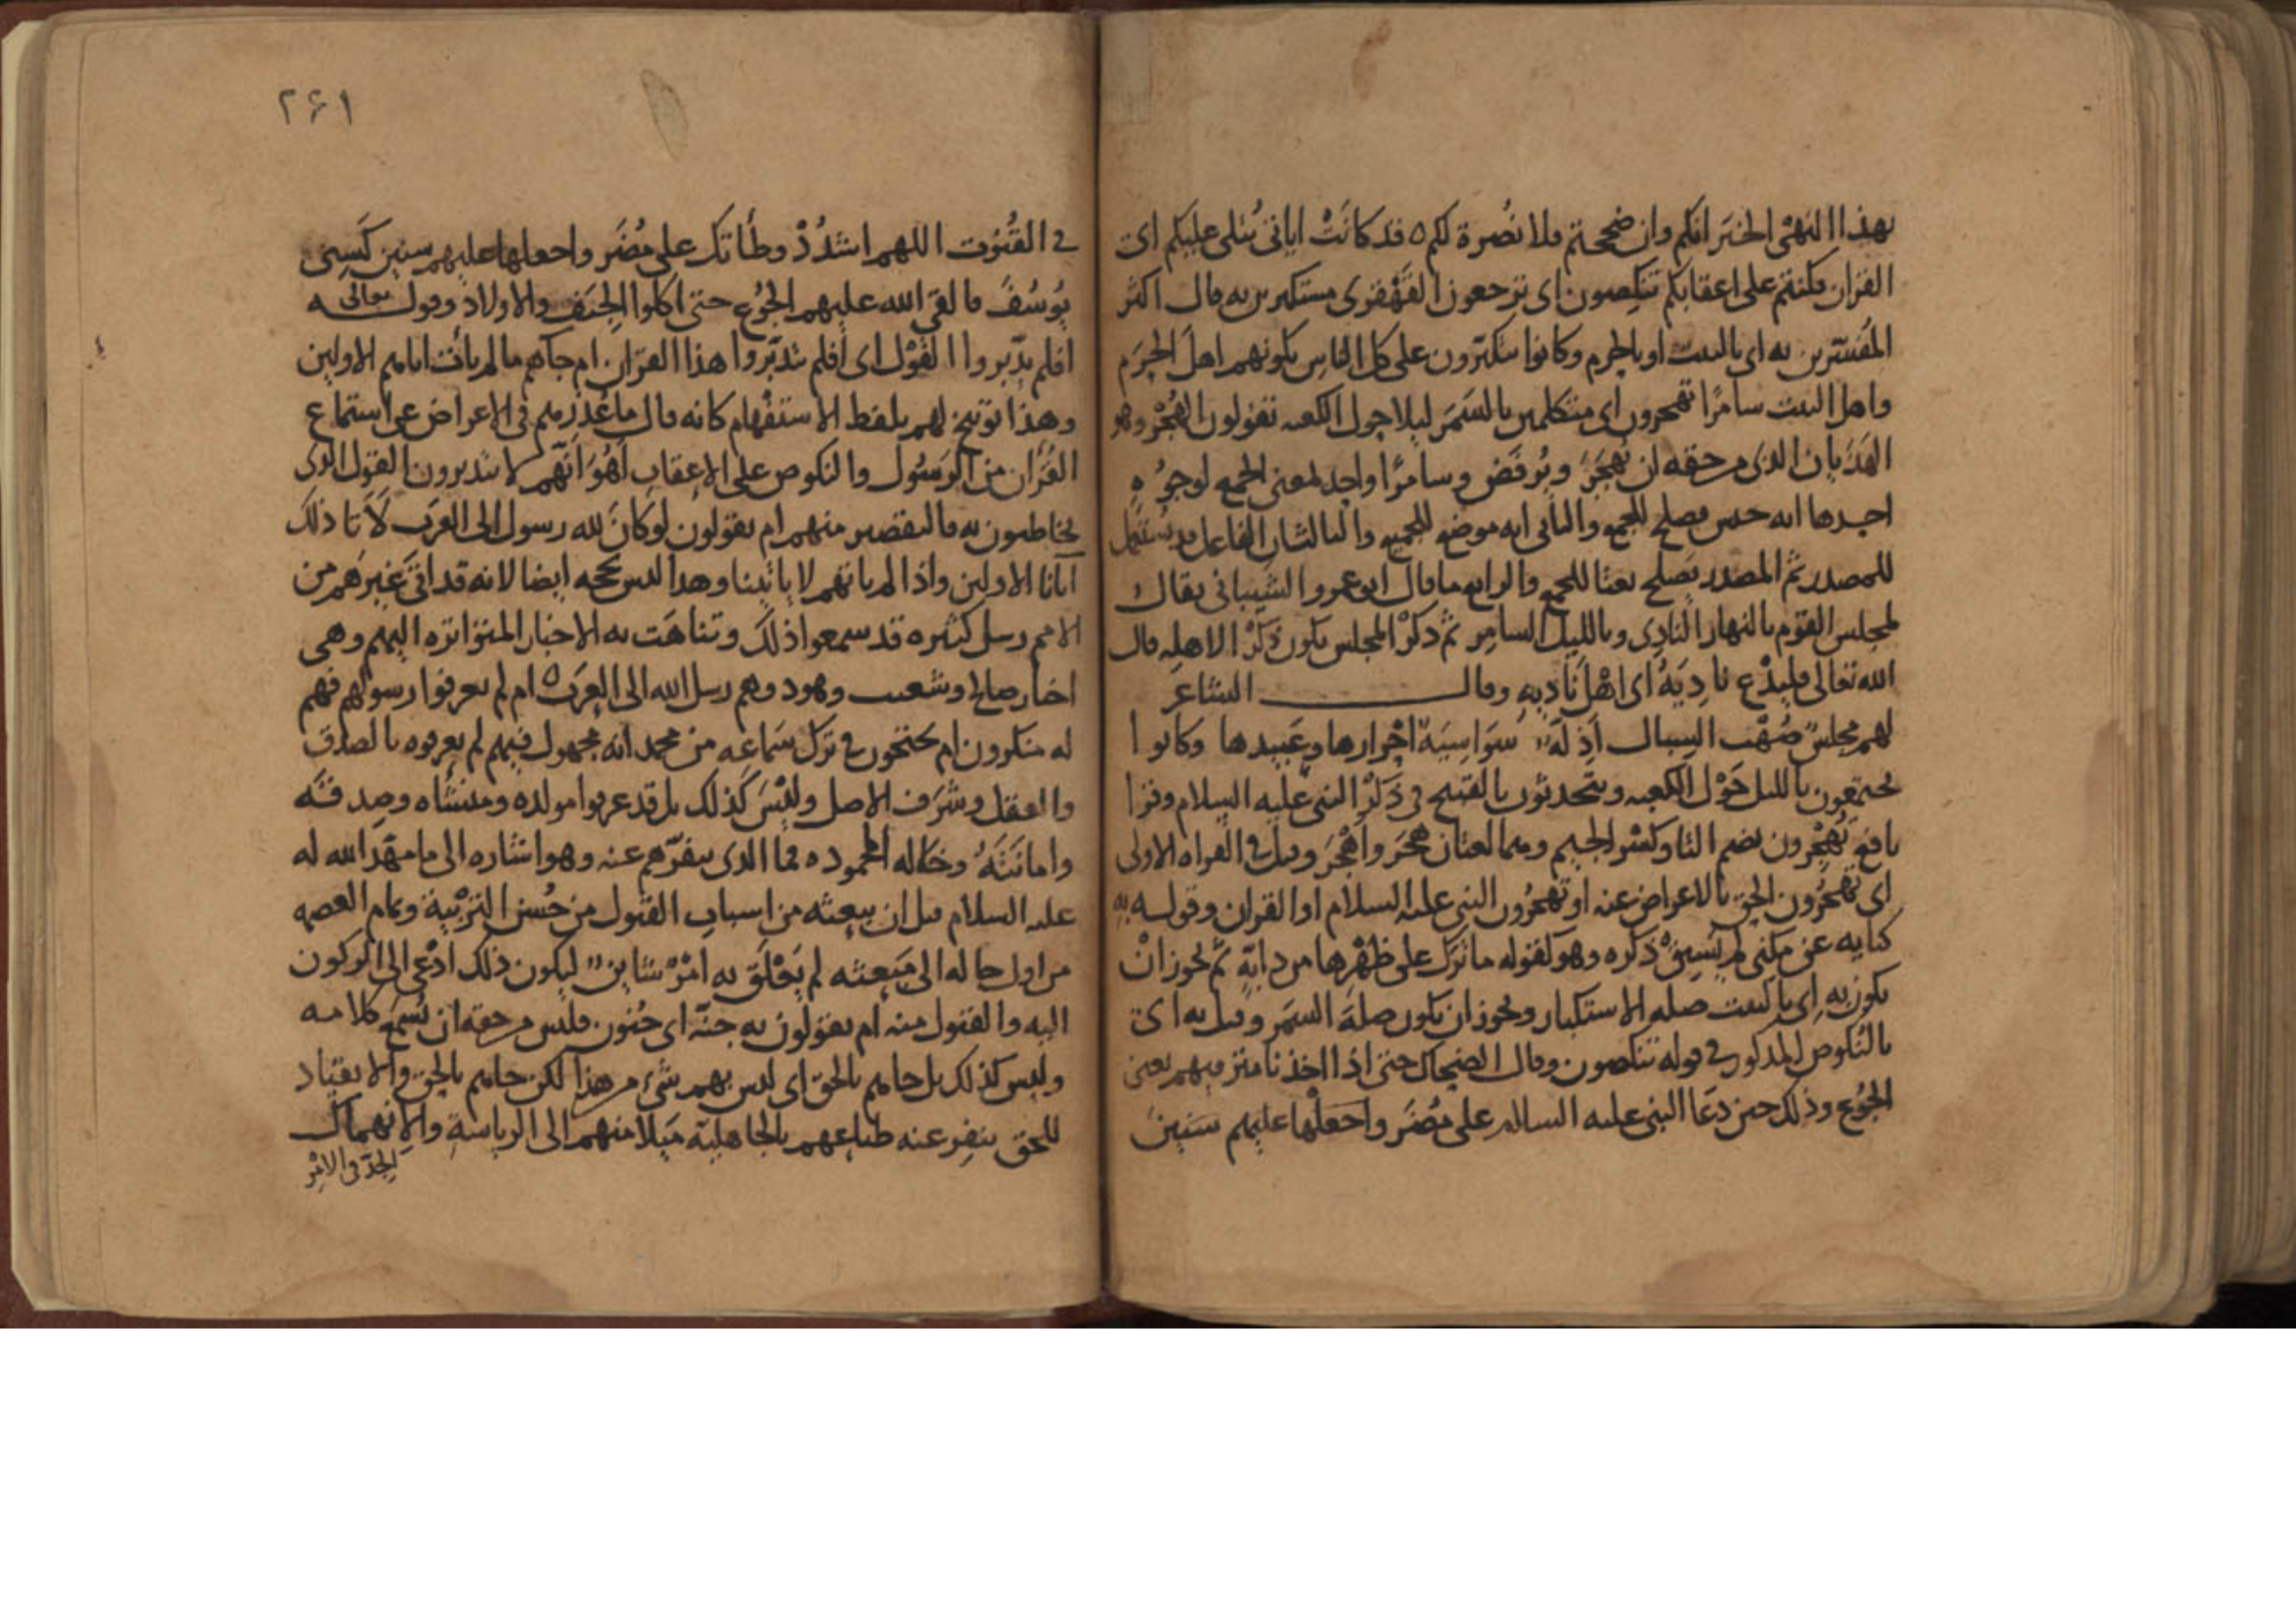 بهذا النهي الخبر انكم وان ضججتم فلا نصرة لكم ه قد كانت اياتي تتلى عليكم اي
القران فكنتم على اعقابكم تنكصون اى ترجعون القهقرى مستكبرين به قال اكثر
المفسرين به اى بالبيت او بالحرم وكانوا يتكبرون على كل الناس بكونهم اهل الحرم
واهل البيت سامرا تهجرون اى متكلمين بالسمر ليلا حول الكعبه تقولون الهجر وهو
الهذيان الذى من حقه ان يهجر ويرفض وسامرا واحد لمعنى الجمع لوجوه
احدها انه جنس فيصلح للجمع والثانى انه موضع للجميع والثالث ان الفاعل قد يستعمل
للمصدر ثم المصدر يصلح نعتا للجمع والرابع ما قال ابو عمرو الشيبانى يقال
لمجلس القوم بالنهار النادى وبالليل السامر ثم ذكر المجلس يكون ذكرا لاهله قال
الله تعالى فليدع ناديه اى اهل ناديه وقال الشاعر
لهم مجلس صهب السبال اذله سواسية احرارها وعبيدها وكانوا
يجتمعون بالليل حول الكعبه ويتحدثون بالقبيح فى ذكر النبى عليه السلام وقرا
نافع تهجرون بضم التا وكسر الجيم وهما لغتان هجر واهجر وقيل فى القراه الاولى
اى تهجرون الحق بالاعراض عنه او تهجرون النبى عليه السلام او القران وقوله به
كنايه عن مكنى لم يسبق ذكره وهو كقوله ما ترك على ظهرها من دابة ثم يجوز ان
يكون به اى بالبيت صله الاستكبار ويجوز ان يكون صلة السمر وقيل به اى
بالنكوص المذكور فى قوله تنكصون وقال الضحاك حتى اذا اخذنا مترفيهم يعنى
الجوع وذلك حين دعا النبى عليه السلام على مضر واجعلها عليهم سنين
٢٤١
فى القنوت اللهم اشدد وطأتك على مضر واجعلها عليهم سنين كسنى
يوسف فالقى الله عليهم الجوع حتى اكلوا الجيف والاولاد وقوله تعالى
افلم يدبروا القول اى افلم يتدبروا هذا القران ام جاهم مالم يات اباهم الاولين
وهذا توبيخ لهم بلفظ الاستفهام كانه قال ما عذرهم فى الاعراض عن استماع
القران من الرسول والنكوص على الاعقاب أهو انهم لا يتدبرون القول الذى
يخاطبون به فالتقصير منهم ام يقولون لو كان لله رسول الى العرب لاتا ذلك
آبانا الاولين واذا لم ياتهم لا ياتينا وهذا ليس بحجه ايضا لانه قد اتى غيرهم من
الامم رسل كثيره قد سمعوا ذلك وتناهت به الاخبار المتواتره اليهم وهى
اخبار صالح وشعيب وهود وهم رسل الله الى العرب ه ام لم يعرفوا رسولهم فهم
له منكرون ام يحتجون فى ترك سماعه من محمد انه مجهول فيهم لم يعرفوه بالصدق
والعقل وشرف الاصل وليس كذلك بل قد عرفوا مولده ومنشاه وصدقه
وامانته وخاله المحموده فما الذى ينفرهم عنه وهو اشاره الى ما مهد الله له
عليه السلام قبل ان يبعثه من اسباب القبول من حسن التربية وتمام العصمه
من اول حاله الى مبعثه لم يعلق به امر شاين ليكون ذلك ادعى الى الركون
اليه والقبول منه ام يقولون به جنة اى جنون فليس من حقه ان يسمع كلامه
وليس كذلك بل جاهم بالحق اى ليس بهم شى من هذا لكن جاهم بالحق والانقياد
للحق ينفر عنه طباعهم بالجاهلية ميلا منهم الى الرياسة والانهماك
الجد فى الامر